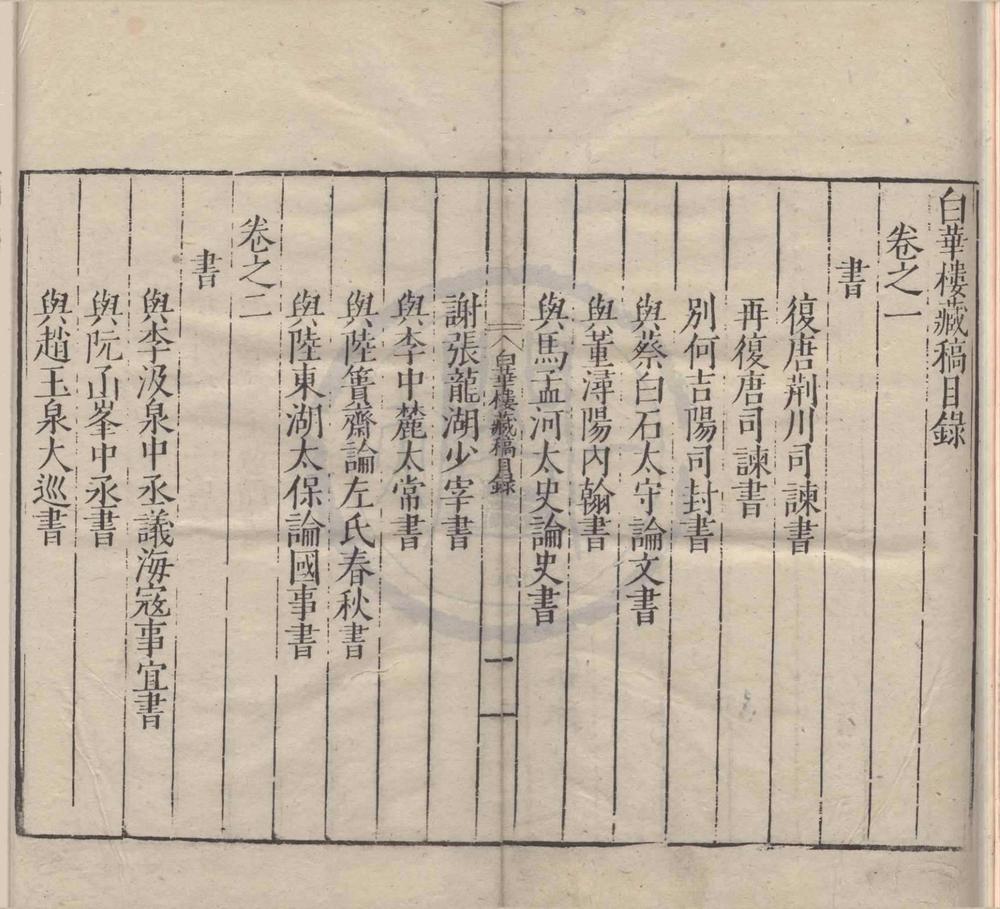 白華樓藏稿目錄
卷之一
書
復唐荊川司諫書
再復唐司諫書
別何吉陽司封書
與蔡白石太守論文書
與董潯陽內翰書
與馬孟河太史論史書
白華樓藏稿目錄 一
謝張龍湖少宰書
與李中麓太常書
與陸簣齋論左氏春秋書
與陸東湖太保論國事書
卷之二
書
與李汲泉中丞議海寇事宜書
與阮函峯中丞書
與趙玉泉大巡書